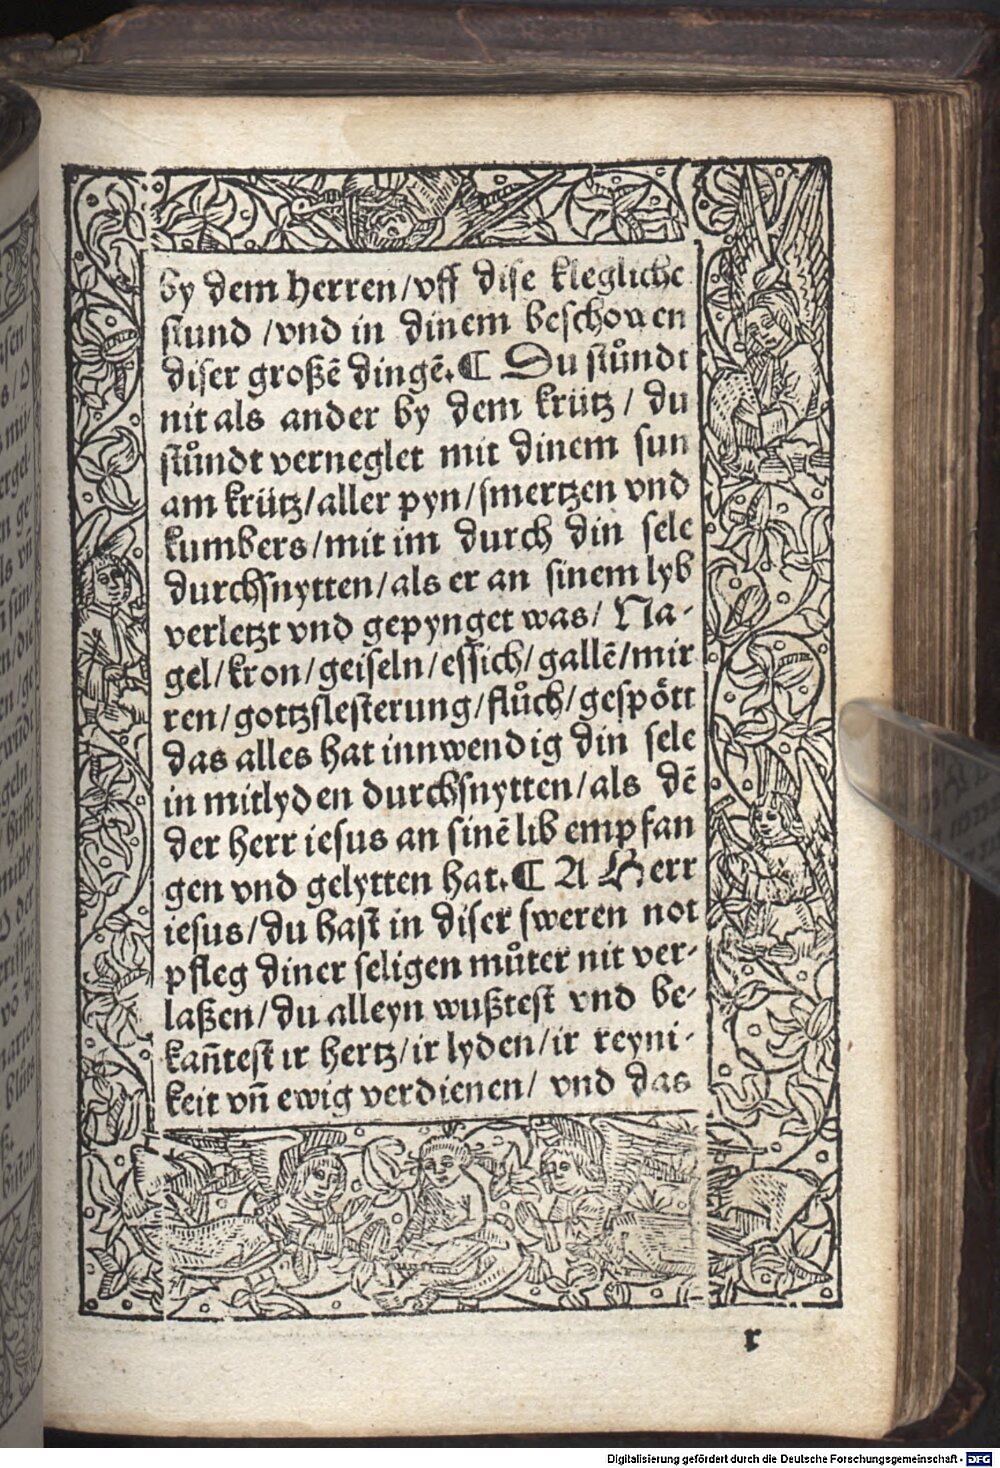 by dem herren/vff dise klegliche
stund /vnd in dinem beschouen
diser großē dingē.¶ Du stůndt
nit als ander by dem krütz / du
stůndt verneglet mit dinem sun
am krütz/aller pyn/smertzen vnd
kumbers/mit im durch din sele
durchsnytten/als er an sinem lyb
verletzt vnd gepynget was/ Na-
gel/kron/geiseln/essich/gallē/mir
ren/gottzslesterung/flůch/gespött
das alles hat innwendig din sele
in mitlyden durchsnytten/als dē
der herr iesus an sinē lib empfan
gen vnd gelytten hat.¶ A Herr
iesus/du hast in diser sweren not
pfleg diner seligen můter nit ver-
laßen/du alleyn wußtest vnd be-
kañtest ir hertz/ir lyden/ir reyni-
keit vñ ewig verdienen/ vnd das
r
Digitalisierung gefördert durch die Deutsche Forschungsgemeinschaft - DFG